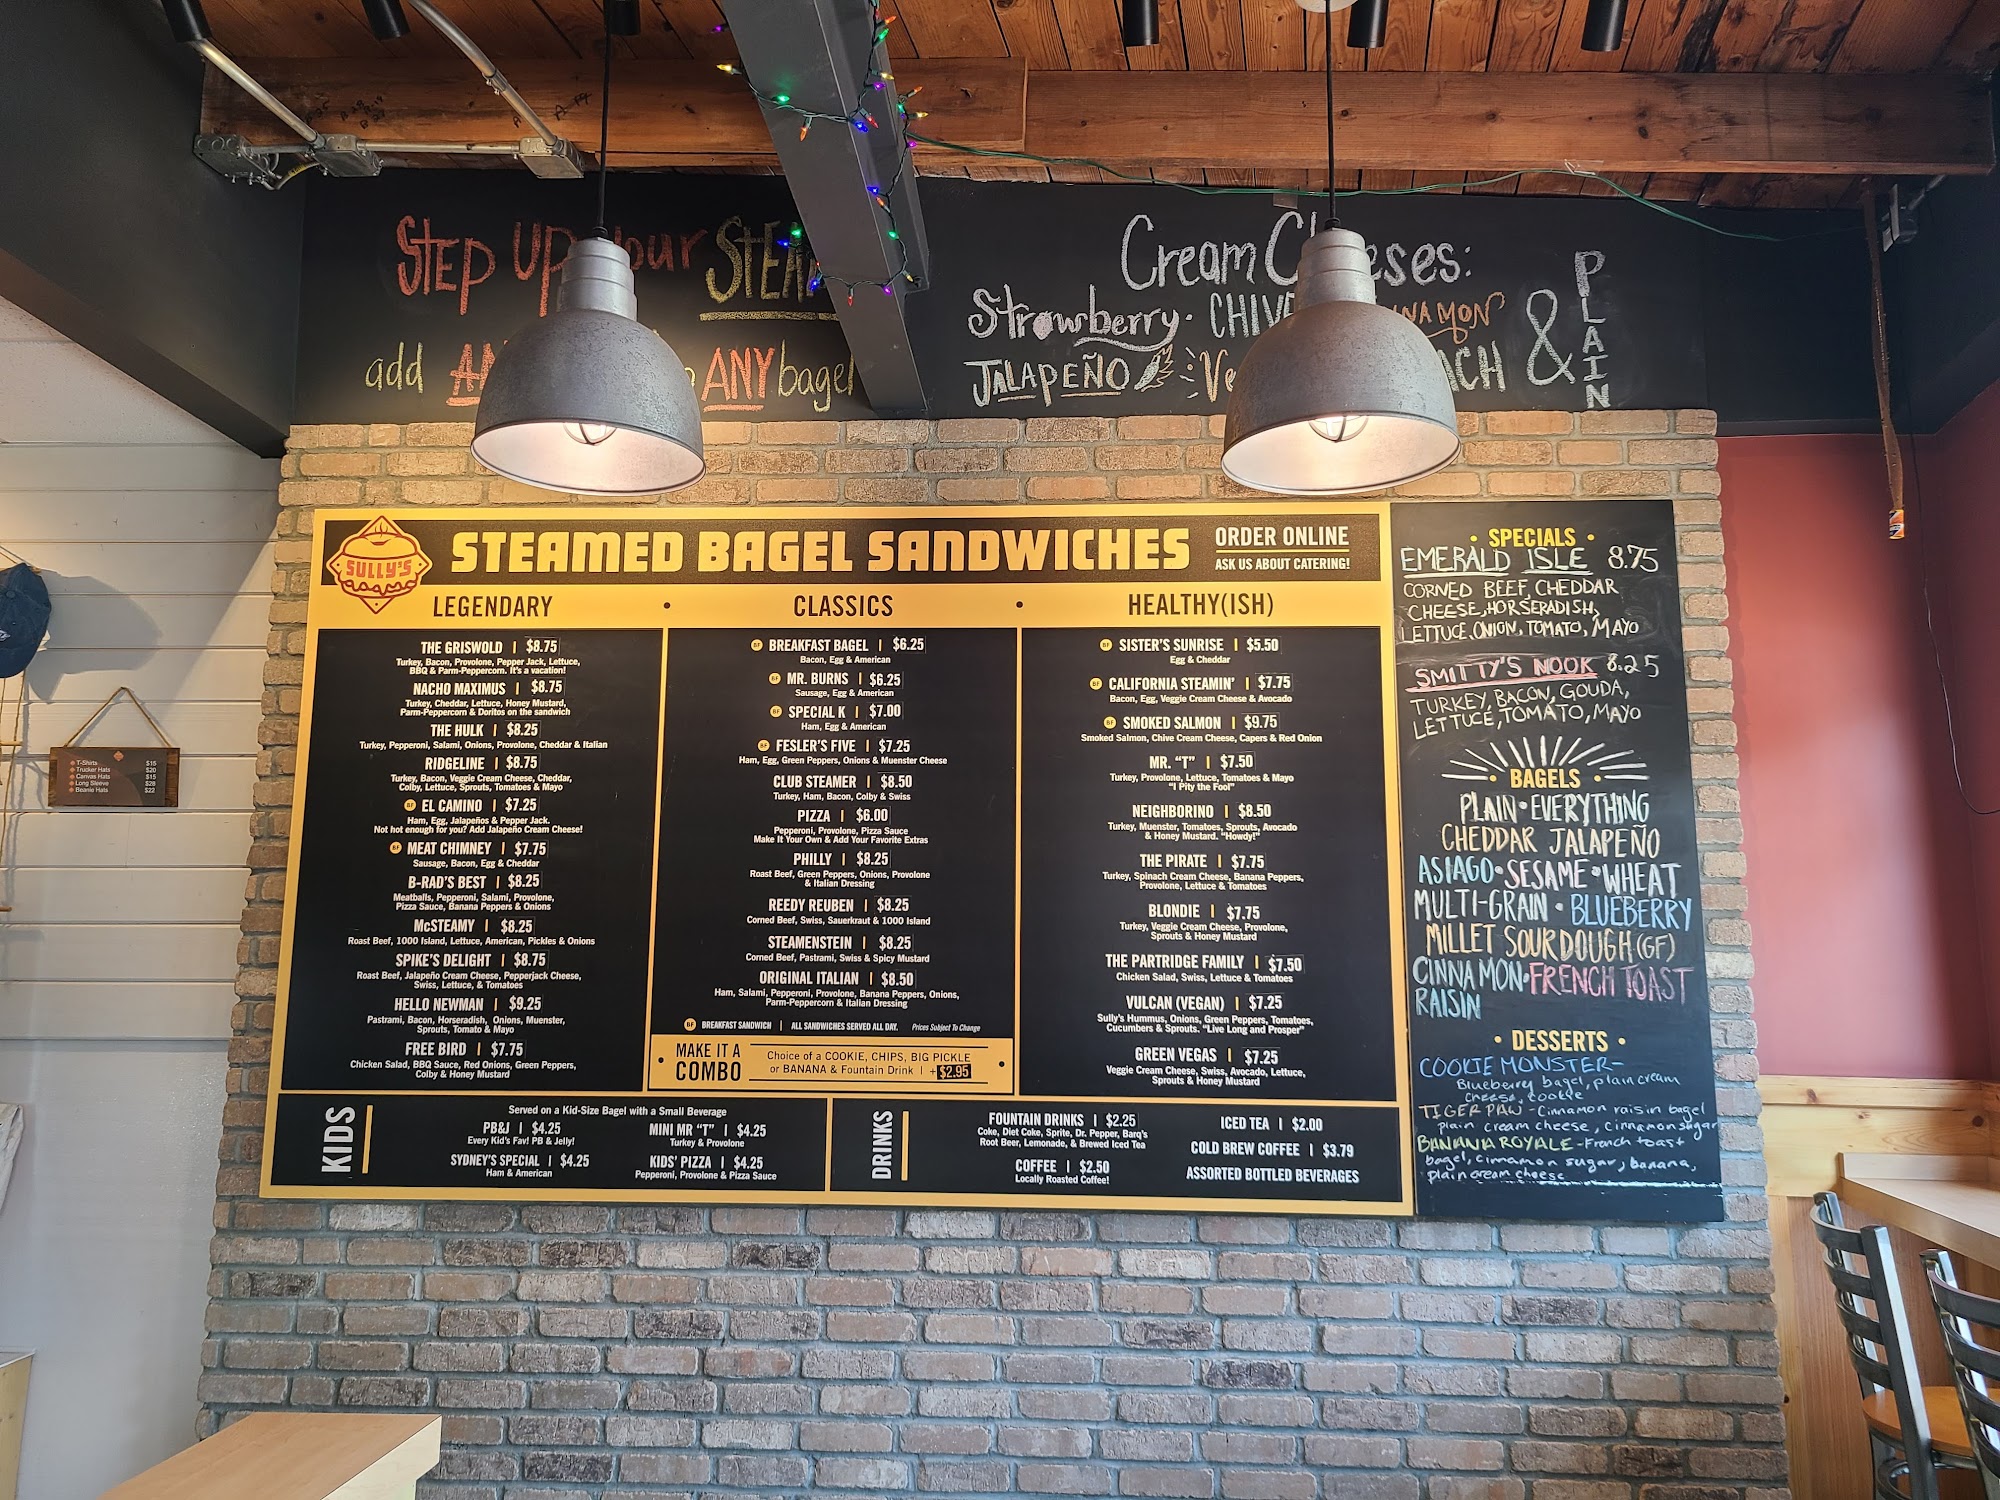 Step Up your STEAM
add ANY bagel
Cream Cheeses:
Strawberry · CHIVE CINNAMON
JALAPEÑO
& PLAIN
SULLY'S
STEAMED BAGEL SANDWICHES
ORDER ONLINE
ASK US ABOUT CATERING!
LEGENDARY • CLASSICS • HEALTHY(ISH)
THE GRISWOLD | $8.75
Turkey, Bacon, Provolone, Pepper Jack, Lettuce,
BBQ & Parm-Peppercorn. It's a vacation!
NACHO MAXIMUS | $8.75
Turkey, Cheddar, Lettuce, Honey Mustard,
Parm-Peppercorn & Doritos on the sandwich
THE HULK | $8.25
Turkey, Pepperoni, Salami, Onions, Provolone, Cheddar & Italian
RIDGELINE | $8.75
Turkey, Bacon, Veggie Cream Cheese, Cheddar,
Colby, Lettuce, Sprouts, Tomatoes & Mayo
BF EL CAMINO | $7.25
Ham, Egg, Jalapeños & Pepper Jack.
Not hot enough for you? Add Jalapeño Cream Cheese!
BF MEAT CHIMNEY | $7.75
Sausage, Bacon, Egg & Cheddar
B-RAD'S BEST | $8.25
Meatballs, Pepperoni, Salami, Provolone,
Pizza Sauce, Banana Peppers & Onions
McSTEAMY | $8.25
Roast Beef, 1000 Island, Lettuce, American, Pickles & Onions
SPIKE'S DELIGHT | $8.75
Roast Beef, Jalapeño Cream Cheese, Pepperjack Cheese,
Swiss, Lettuce, & Tomatoes
HELLO NEWMAN | $9.25
Pastrami, Bacon, Horseradish, Onions, Muenster,
Sprouts, Tomato & Mayo
FREE BIRD | $7.75
Chicken Salad, BBQ Sauce, Red Onions, Green Peppers,
Colby & Honey Mustard
BF BREAKFAST BAGEL | $6.25
Bacon, Egg & American
BF MR. BURNS | $6.25
Sausage, Egg & American
BF SPECIAL K | $7.00
Ham, Egg & American
BF FESLER'S FIVE | $7.25
Ham, Egg, Green Peppers, Onions & Muenster Cheese
CLUB STEAMER | $8.50
Turkey, Ham, Bacon, Colby & Swiss
PIZZA | $6.00
Pepperoni, Provolone, Pizza Sauce
Make It Your Own & Add Your Favorite Extras
PHILLY | $8.25
Roast Beef, Green Peppers, Onions, Provolone
& Italian Dressing
REEDY REUBEN | $8.25
Corned Beef, Swiss, Sauerkraut & 1000 Island
STEAMENSTEIN | $8.25
Corned Beef, Pastrami, Swiss & Spicy Mustard
ORIGINAL ITALIAN | $8.50
Ham, Salami, Pepperoni, Provolone, Banana Peppers, Onions,
Parm-Peppercorn & Italian Dressing
BF BREAKFAST SANDWICH | ALL SANDWICHES SERVED ALL DAY. Prices Subject To Change
• MAKE IT A COMBO
Choice of a COOKIE, CHIPS, BIG PICKLE
or BANANA & Fountain Drink | +$2.95 •
BF SISTER'S SUNRISE | $5.50
Egg & Cheddar
BF CALIFORNIA STEAMIN' | $7.75
Bacon, Egg, Veggie Cream Cheese & Avocado
BF SMOKED SALMON | $9.75
Smoked Salmon, Chive Cream Cheese, Capers & Red Onion
MR. "T" | $7.50
Turkey, Provolone, Lettuce, Tomatoes & Mayo
"I Pity the Fool"
NEIGHBORINO | $8.50
Turkey, Muenster, Tomatoes, Sprouts, Avocado
& Honey Mustard. "Howdy!"
THE PIRATE | $7.75
Turkey, Spinach Cream Cheese, Banana Peppers,
Provolone, Lettuce & Tomatoes
BLONDIE | $7.75
Turkey, Veggie Cream Cheese, Provolone,
Sprouts & Honey Mustard
THE PARTRIDGE FAMILY | $7.50
Chicken Salad, Swiss, Lettuce & Tomatoes
VULCAN (VEGAN) | $7.25
Sully's Hummus, Onions, Green Peppers, Tomatoes,
Cucumbers & Sprouts. "Live Long and Prosper"
GREEN VEGAS | $7.25
Veggie Cream Cheese, Swiss, Avocado, Lettuce,
Sprouts & Honey Mustard
KIDS
Served on a Kid-Size Bagel with a Small Beverage
PB&J | $4.25
Every Kid's Fav! PB & Jelly!
SYDNEY'S SPECIAL | $4.25
Ham & American
MINI MR "T" | $4.25
Turkey & Provolone
KIDS' PIZZA | $4.25
Pepperoni, Provolone & Pizza Sauce
DRINKS
FOUNTAIN DRINKS | $2.25
Coke, Diet Coke, Sprite, Dr. Pepper, Barq's
Root Beer, Lemonade, & Brewed Iced Tea
COFFEE | $2.50
Locally Roasted Coffee!
ICED TEA | $2.00
COLD BREW COFFEE | $3.79
ASSORTED BOTTLED BEVERAGES
• SPECIALS •
EMERALD ISLE 8.75
CORNED BEEF, CHEDDAR
CHEESE, HORSERADISH,
LETTUCE, ONION, TOMATO, MAYO
SMITTY'S NOOK 8.25
TURKEY, BACON, GOUDA,
LETTUCE, TOMATO, MAYO
• BAGELS •
PLAIN • EVERYTHING
CHEDDAR JALAPEÑO
ASIAGO • SESAME • WHEAT
MULTI-GRAIN • BLUEBERRY
MILLET SOURDOUGH (GF)
CINNAMON • FRENCH TOAST
RAISIN
• DESSERTS •
COOKIE MONSTER-
Blueberry bagel, plain cream
cheese, cookie
TIGER PAW - Cinnamon raisin bagel
plain cream cheese, cinnamon sugar
BANANA ROYALE - French toast
bagel, cinnamon sugar, banana,
plain cream cheese
T-Shirts $16
Trucker Hats $20
Canvas Hats $15
Long Sleeve $28
Beanie Hats $22